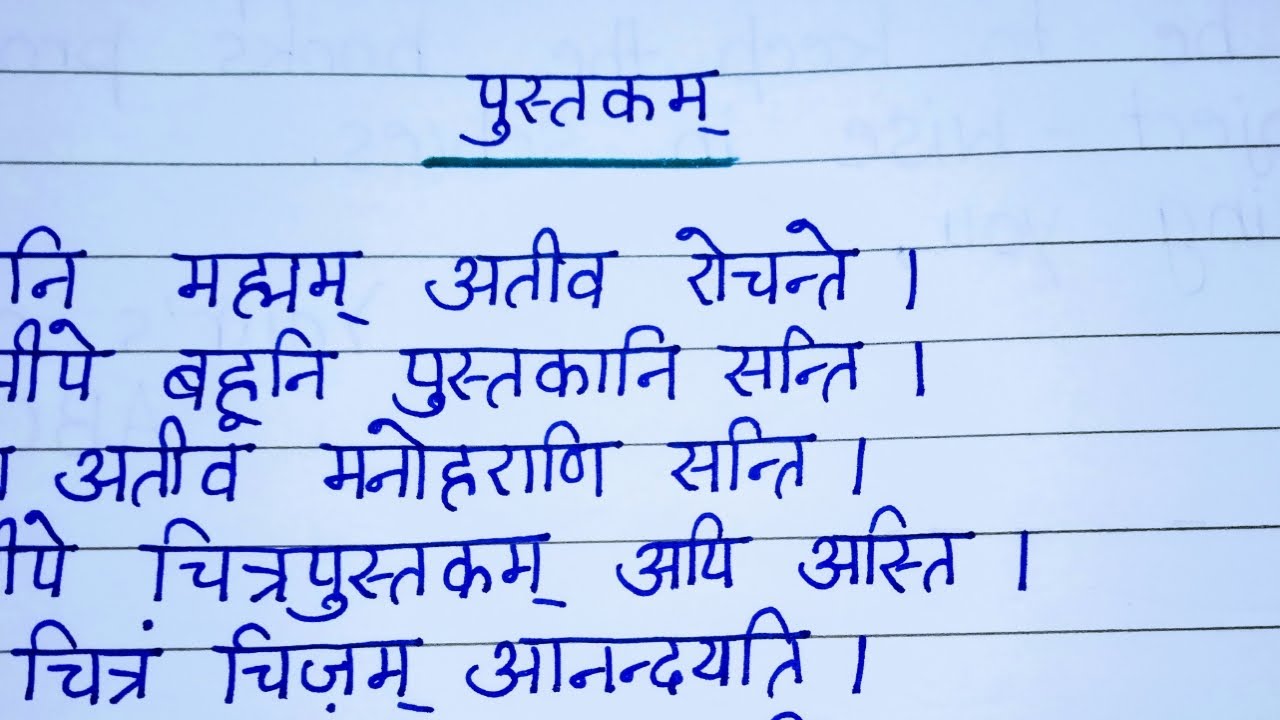 पुस्तकम्
नि मह्मम् अतीव रोचन्ते ।
मीपे बहूनि पुस्तकानि सन्ति ।
अतीव मनोहराणि सन्ति ।
ीपे चित्रपुस्तकम् अपि अस्ति ।
चित्रं चिज़म् आनन्दयति ।